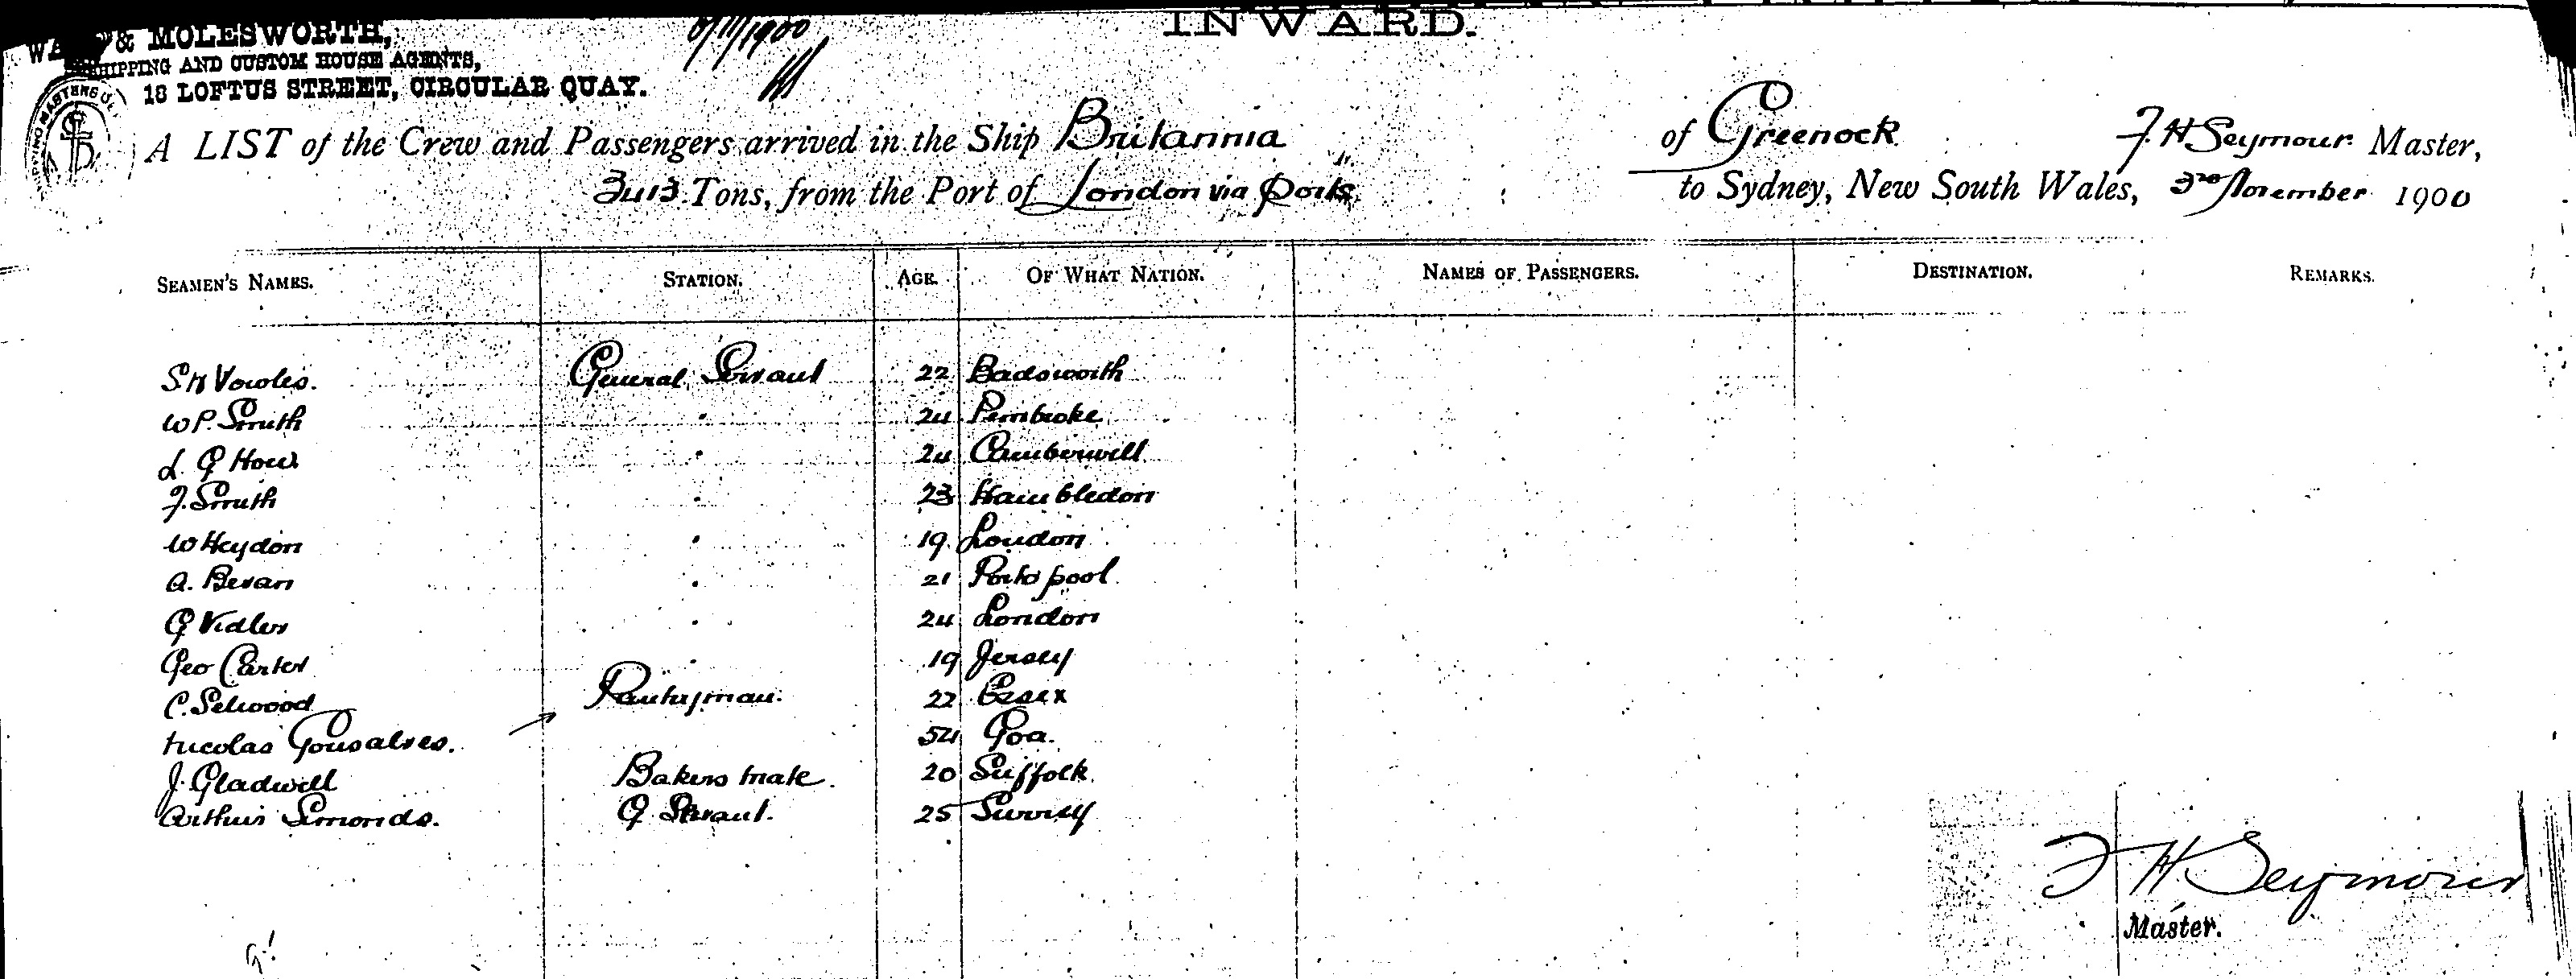 INWARD.
& MOLESWORTH,
SHIPPING AND CUSTOM HOUSE AGENTS,
18 LOFTUS STREET, CIRCULAR QUAY.
6/11/1900
A LIST of the Crew and Passengers arrived in the Ship Britannia of Greenock F. H Seymour Master,
3413 Tons, from the Port of London via Ports to Sydney, New South Wales, 3rd November 1900
SEAMEN'S NAMES. STATION. AGE. OF WHAT NATION. NAMES OF PASSENGERS. DESTINATION. REMARKS.
S H Vowles. General Servant 22 Badsworth
W P. Smith " 24 Pembroke
L. G How " 24 Camberwell
F. Smith " 23 Hambledon
W Heydon " 19 London
A. Bevan " 21 Portspool
G Vidler " 24 London
Geo Carter " 19 Jersey
C. Selwood Pantryman. 22 Essex
Nicolas Gonsalves. 54 Goa.
J. Gladwell Bakers Mate. 20 Suffolk
Arthur Simonds. G Servant. 25 Surrey
F H Seymour
Master.